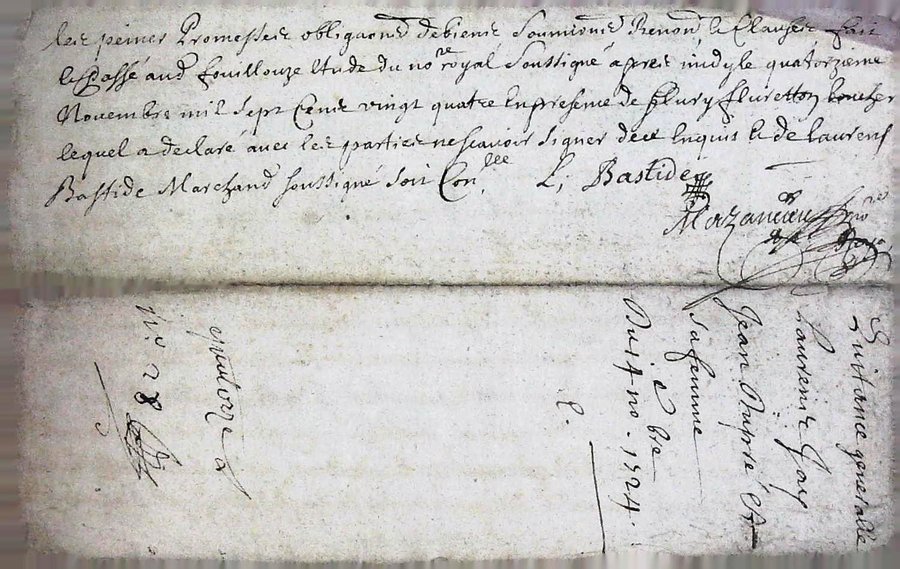 les peines Promesses obligaons de biens Soumions Renon. & Clauses fait
& passé aud fouillouze Etude du no.re royal Soussigné apres midy le quatorzieme
Novembre mil Sept Cens vingt quatre En presense de fleury fleuretton
lequel a declaré avec les parties ne scavoir Signer de ce Enquis & de Laurens
Bastide Marchand soussigné Soit Con.llee L, Bastide
Mazancieu
Quitance generalle
Laurens
Jean Dupré &
sa femme
Du 14 no.bre 1724.
quatorze
N.o 28